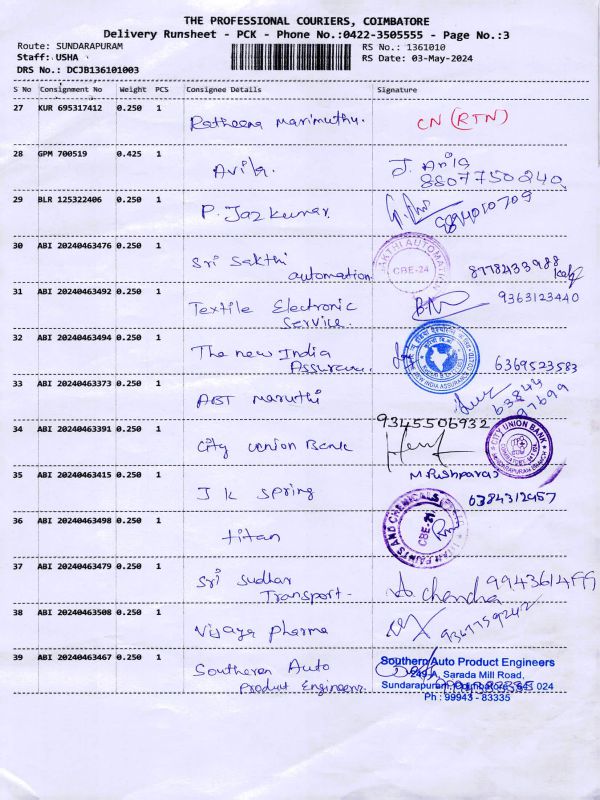 THE PROFESSIONAL COURIERS, COIMBATORE
Delivery Runsheet - PCK - Phone No.:0422-3505555 - Page No.:3
Route: SUNDARAPURAM
RS No.: 1361010
Staff: USHA
RS Date: 03-May-2024
DRS No.: DCJB136101003
S No Consignment No Weight PCS Consignee Details Signature
27 KUR 695317412 0.250 1
Ratheena Marimuthu. CN (RTN)
28 GPM 700519 0.425 1
Avila. J. Avila
8807750240
29 BLR 125322406 0.250 1
P. Jaz Kumar. 9894010709
30 ABI 20240463476 0.250 1
Sri Sakthi automation SAKTHI AUTOMATION CBE-24 8778433988
31 ABI 20240463492 0.250 1
Textile Electronic Service. 9363123440
32 ABI 20240463494 0.250 1
The new India Assuran. 6369523583
33 ABI 20240463373 0.250 1
ABT maruthi 63844 97699
34 ABI 20240463391 0.250 1
9345506932
City union Bank CITY UNION BANK
35 ABI 20240463415 0.250 1 M Pushparaj
J K Spring 6384312957
36 ABI 20240463498 0.250 1
titan PAINTS AND CHEMICALS CBE-21
37 ABI 20240463479 0.250 1
Sri Sudhar Transport. A. Chandra
38 ABI 20240463508 0.250 1
Vijaya Pharma 9367759242
39 ABI 20240463467 0.250 1
Southeren Auto Product Engineers.
Southern Auto Product Engineers
249-A, Sarada Mill Road,
Sundarapuram, Coimbatore - 641 024
Ph : 99943 - 83335